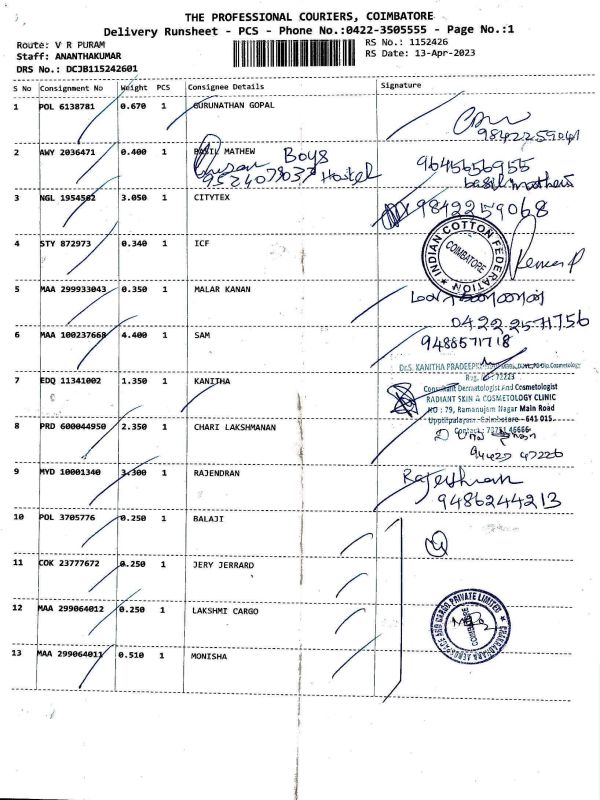 THE PROFESSIONAL COURIERS, COIMBATORE
Delivery Runsheet - PCS - Phone No.:0422-3505555 - Page No.:1
Route: V R PURAM
Staff: ANANTHAKUMAR
DRS No.: DCJB115242601
RS No.: 1152426
RS Date: 13-Apr-2023
S No Consignment No Weight PCS Consignee Details Signature
1 POL 6138781 0.670 1 GURUNATHAN GOPAL
9842259041
2 AWY 2036471 0.400 1 BASIL MATHEW
Boys
Hostel
9524078037
9645656955
basil mathew
3 NGL 1954562 3.050 1 CITYTEX
9842259068
4 STY 872973 0.340 1 ICF
INDIAN COTTON FEDERATION
COIMBATORE
5 MAA 299933043 0.350 1 MALAR KANAN
0422 2571756
6 MAA 100237668 4.400 1 SAM
9488571718
Dr.S. KANITHA PRADEEP
7 EDQ 11341002 1.350 1 KANITHA
Consultant Dermatologist And Cosmetologist
RADIANT SKIN & COSMETOLOGY CLINIC
NO : 79, Ramanujam Nagar Main Road
Uppilipalayam, Coimbatore - 641 015.
8 PRD 600044950 2.350 1 CHARI LAKSHMANAN
94427 47226
9 MYD 10001340 3.300 1 RAJENDRAN
9486244213
10 POL 3705776 0.250 1 BALAJI
11 COK 23777672 0.250 1 JERY JERRARD
12 MAA 299064012 0.250 1 LAKSHMI CARGO
13 MAA 299064011 0.510 1 MONISHA